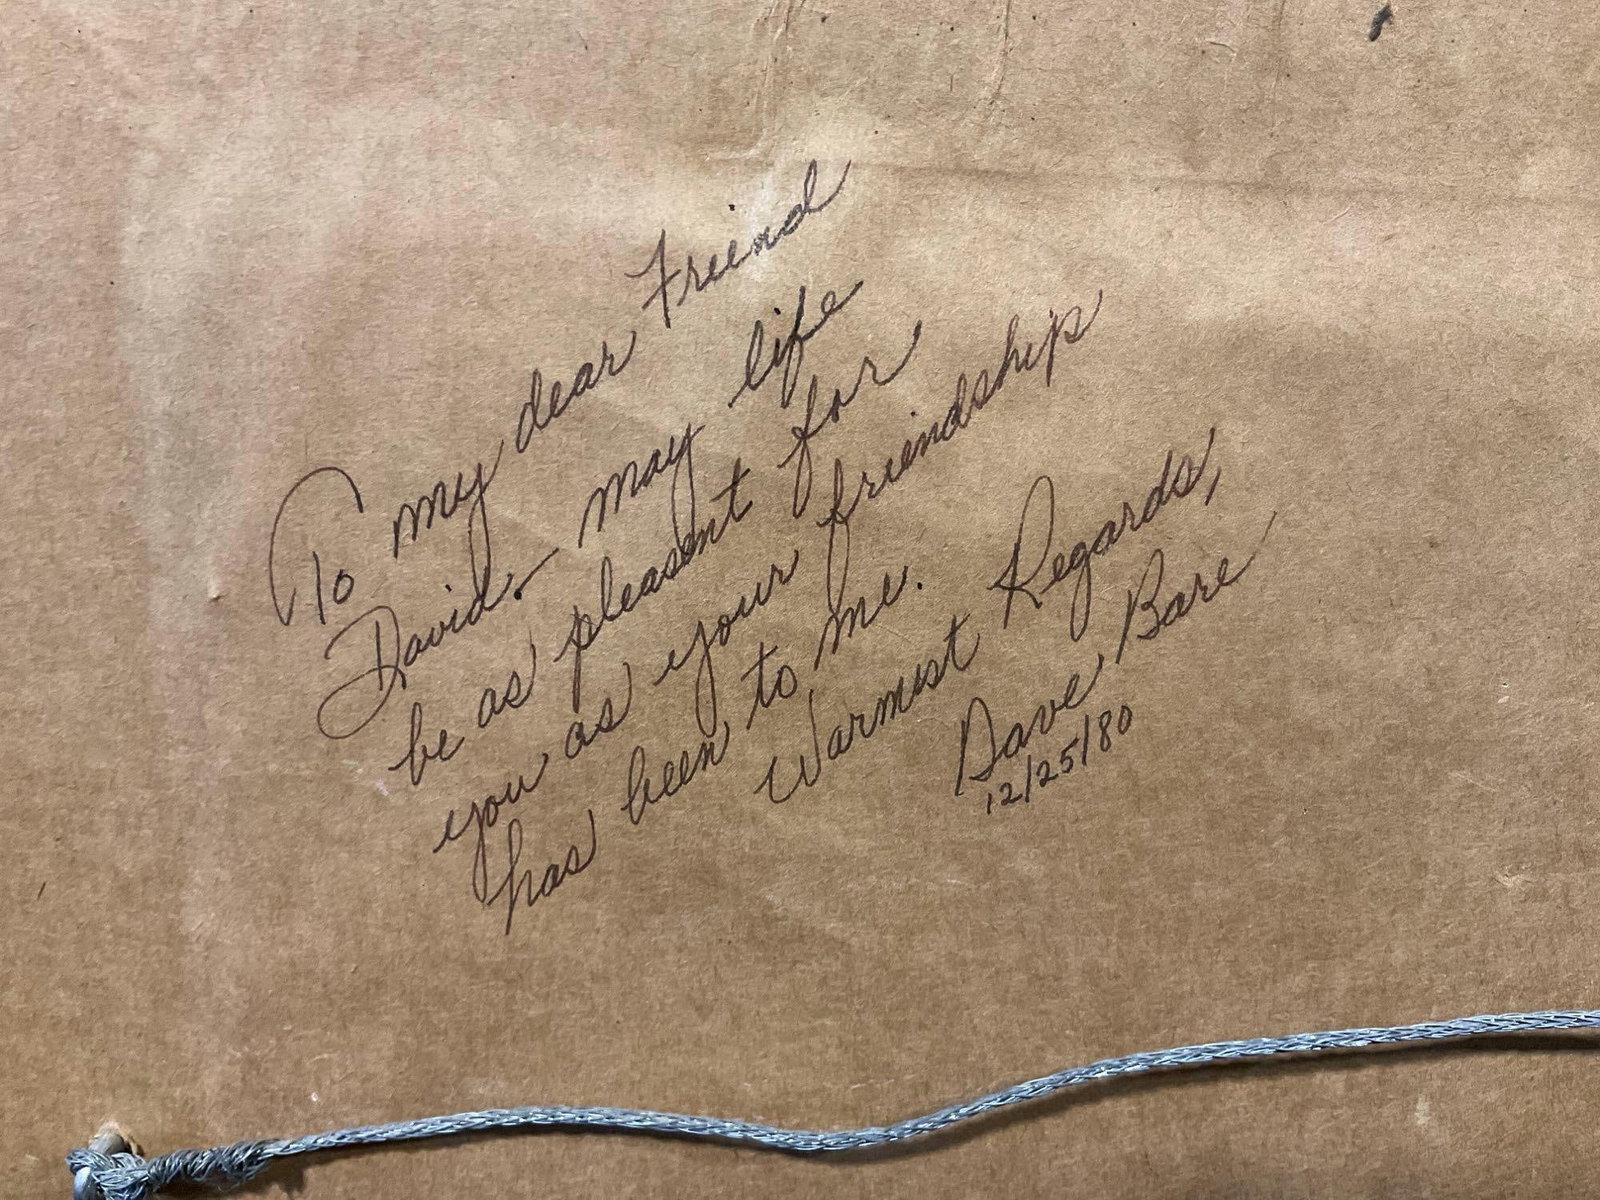 To my dear Freind
David. - may life
be as pleasent for
you as your friendship
has been to me.
Warmest Regards,
Dave Bare
12/25/80